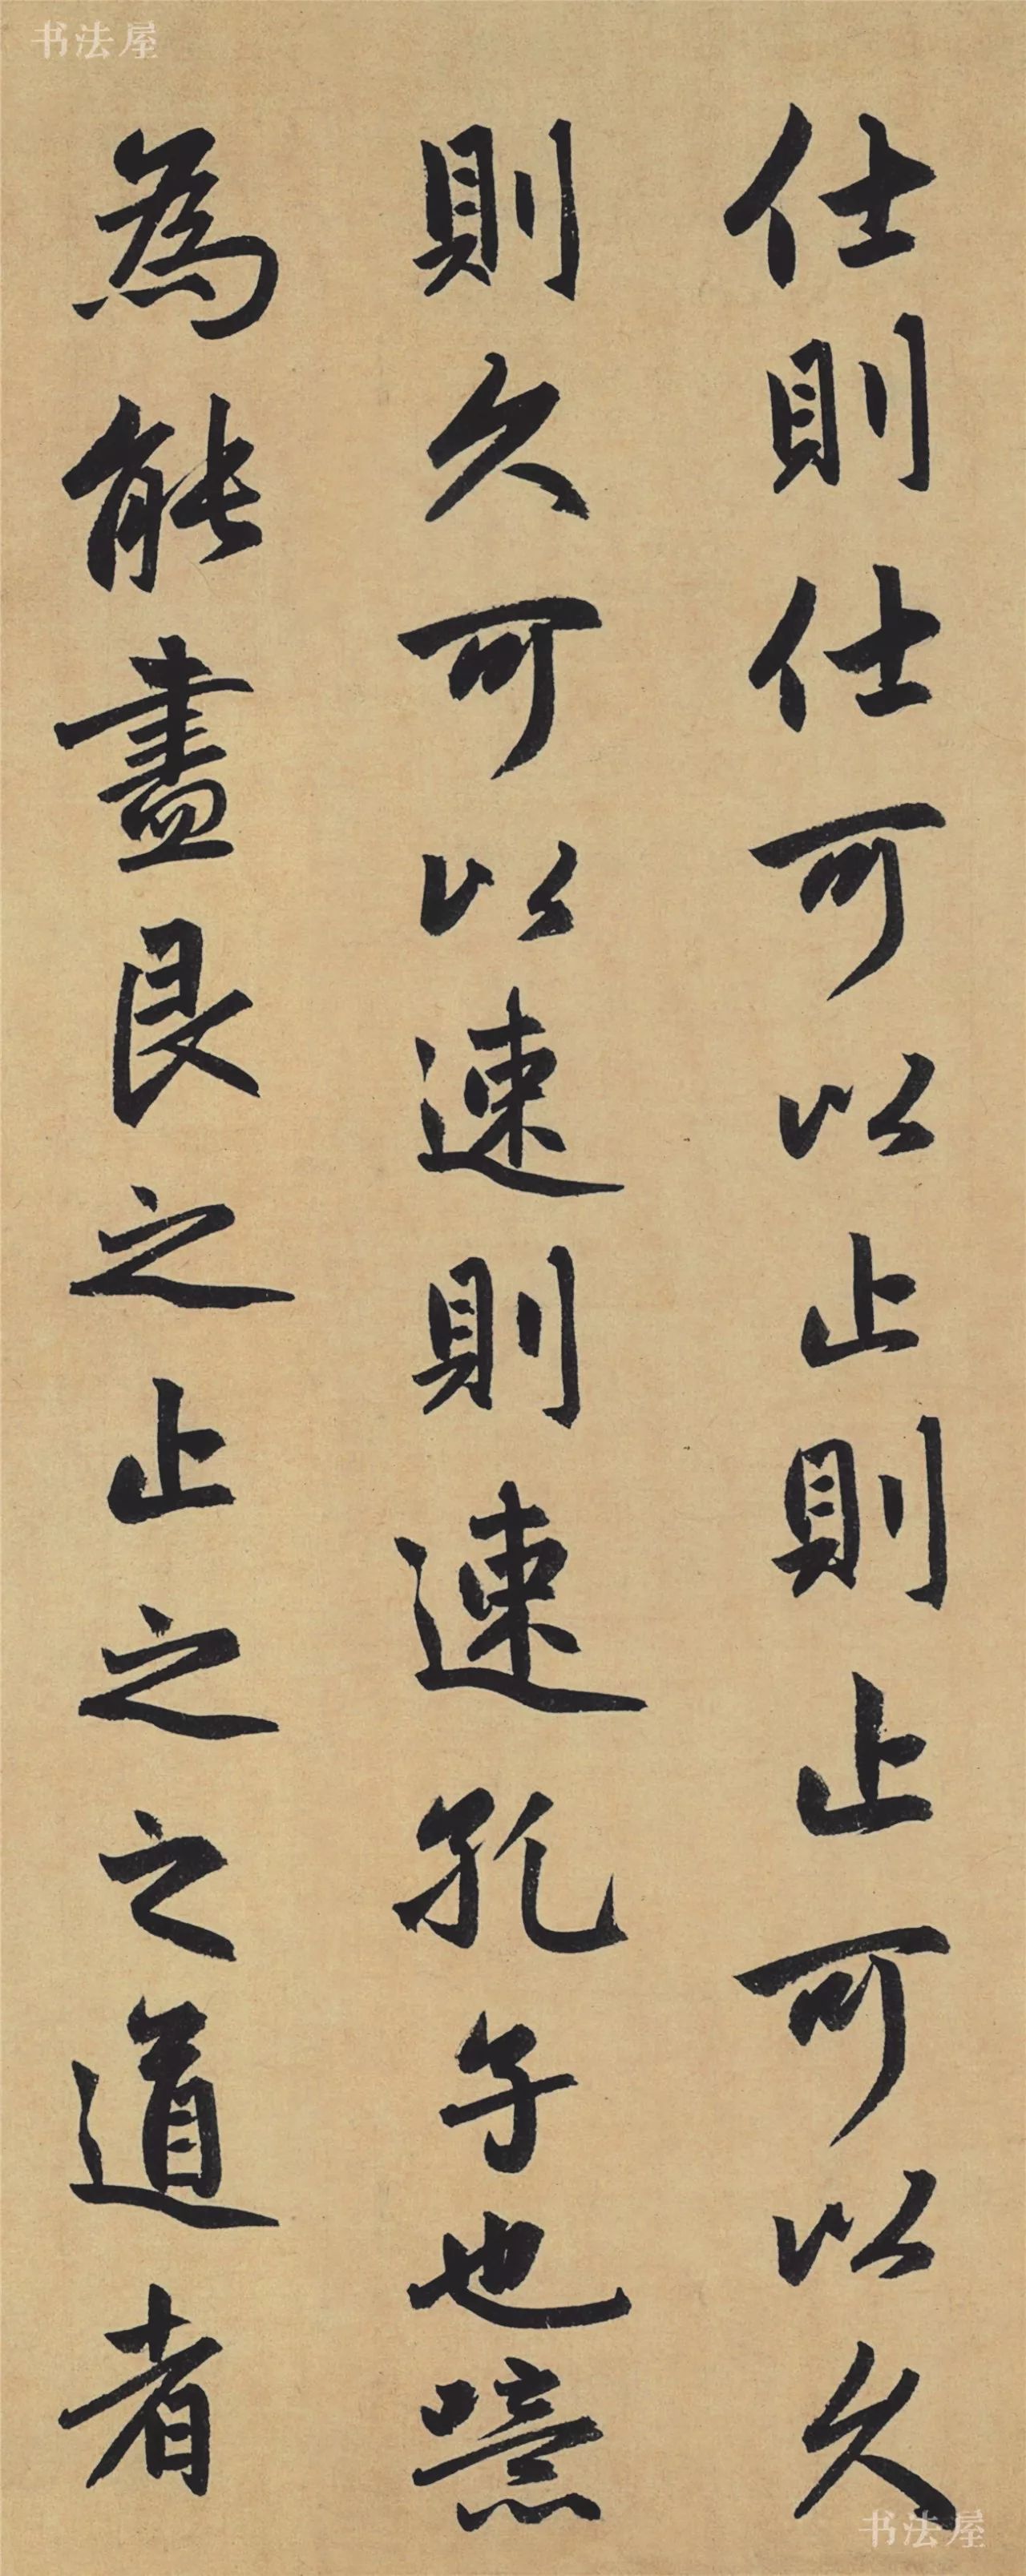 仕則仕可以止則止可以久
則久可以速則速孔子也噫
為能盡艮之止之之道者
书法屋
书法屋